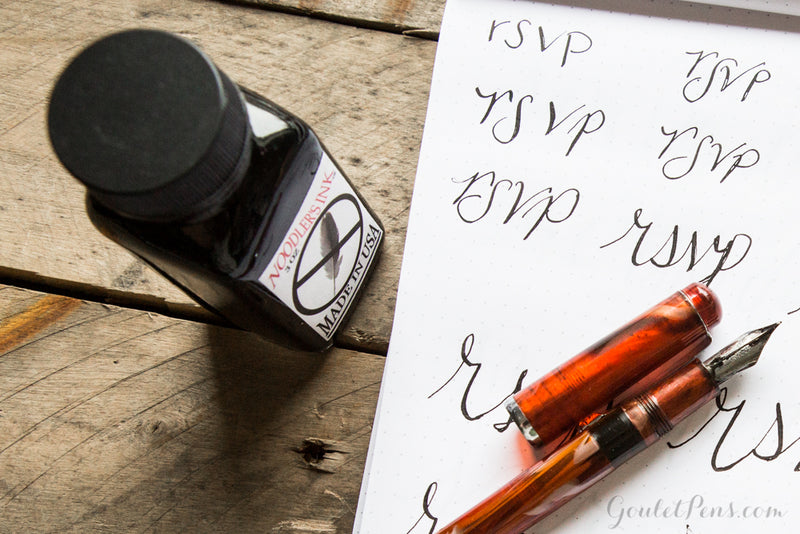 NOODLER'S INK
3 OZ
MADE IN USA
rsvp
rsvp
rsvp
rsvp
rsvp
rsvp
GouletPens.com